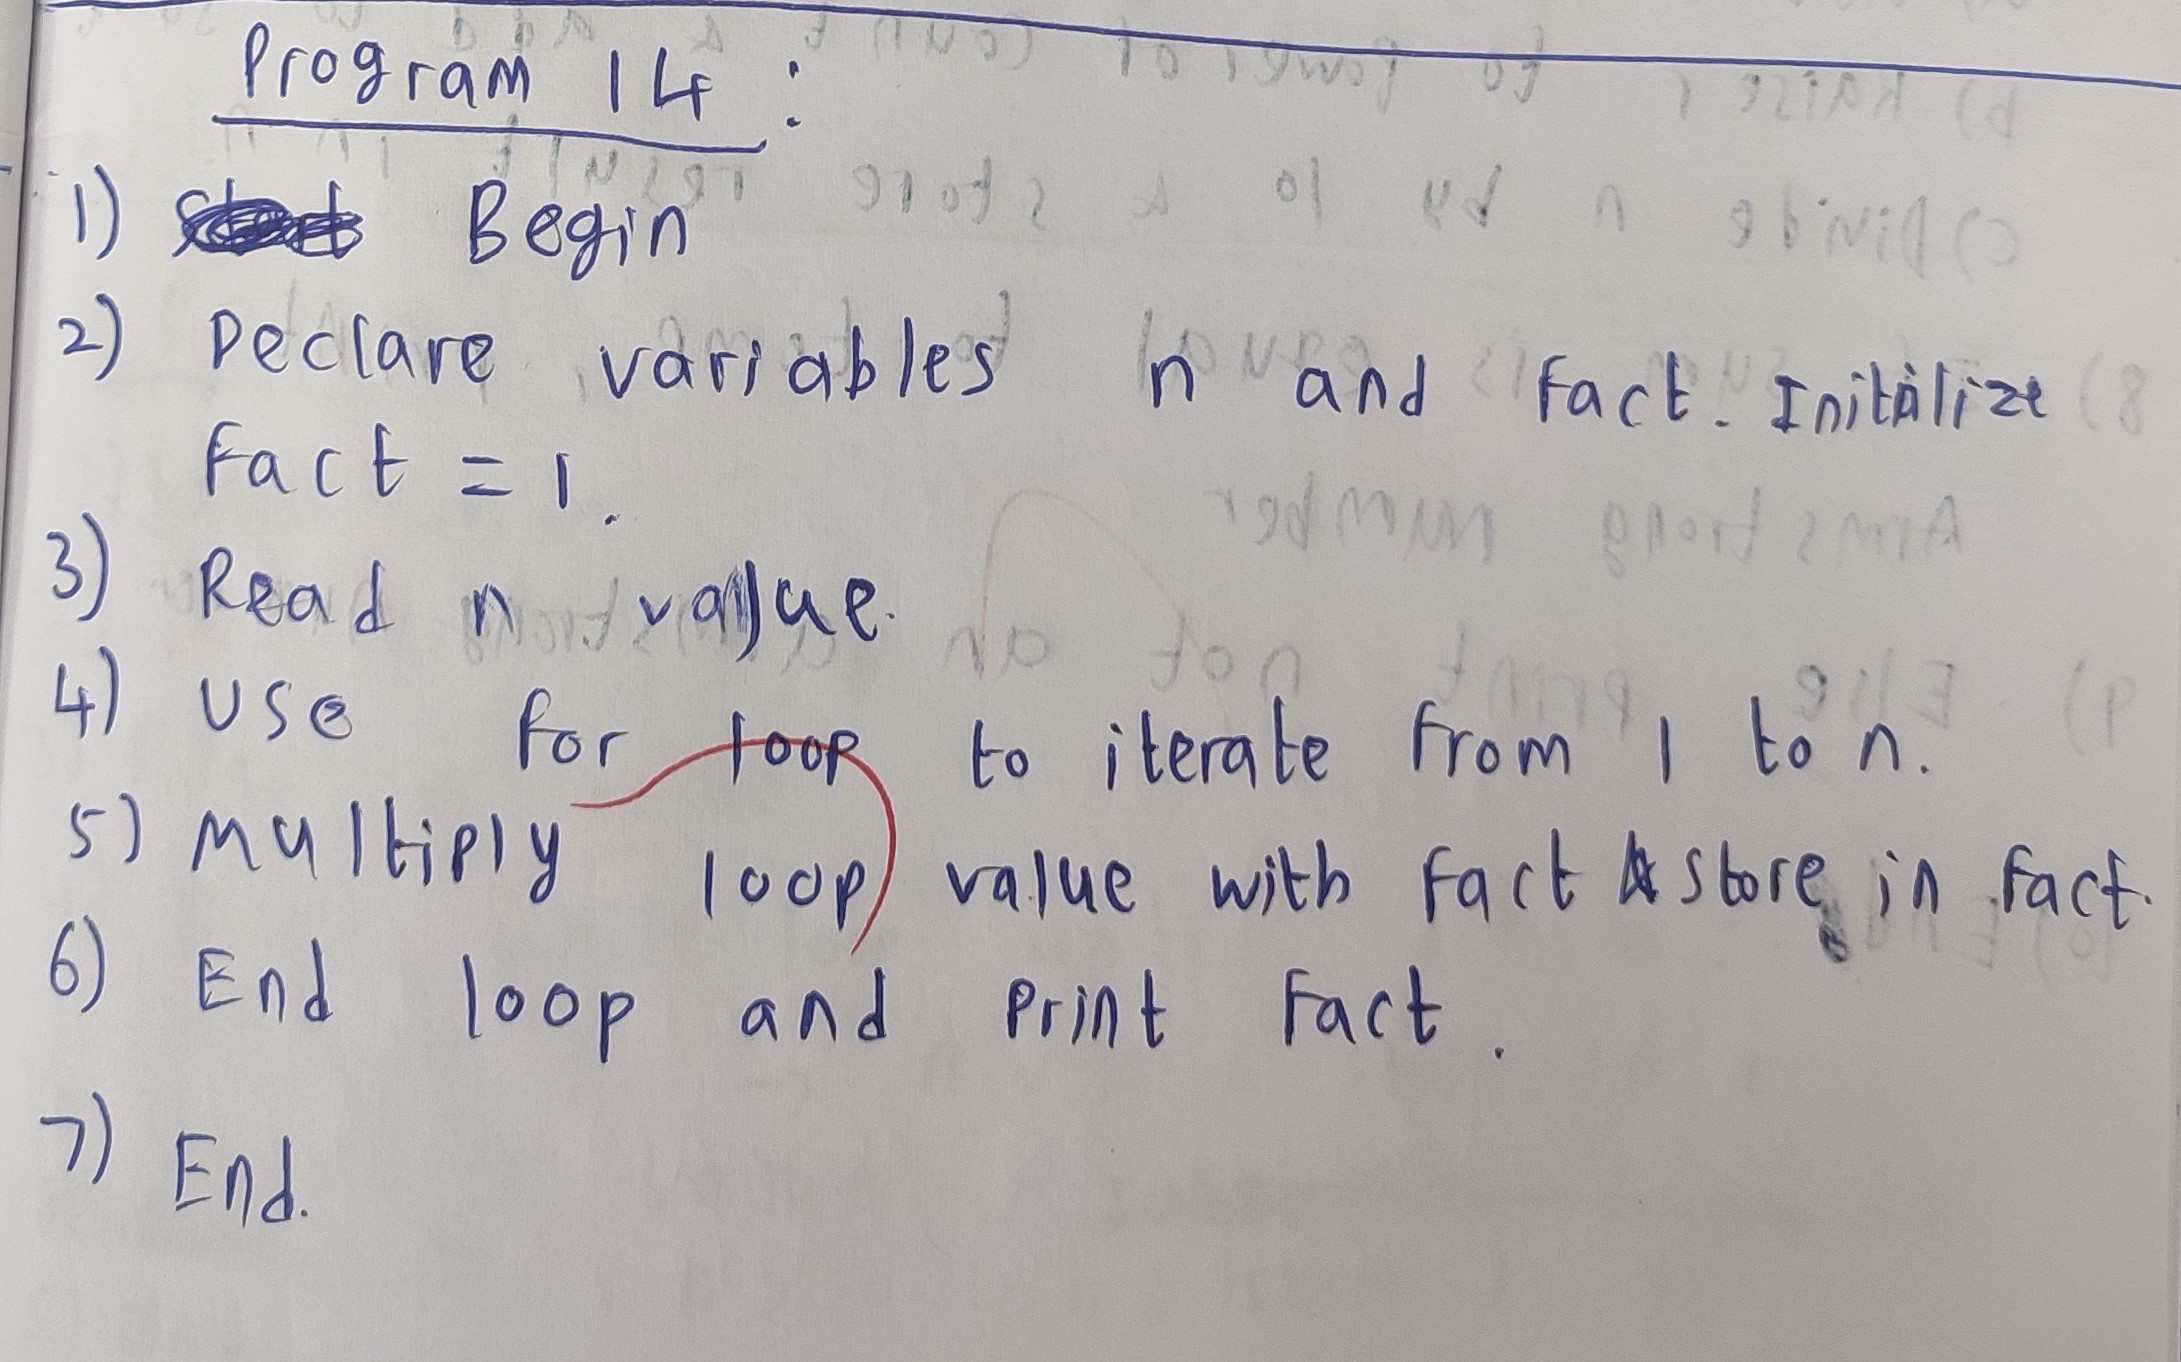 Program 14 :
1) Begin
2) Declare variables n and fact. Initilize
fact = 1.
3) Read n value.
4) Use for loop to iterate from 1 to n.
5) Multiply loop value with fact & store in fact.
6) End loop and print fact.
7) End.